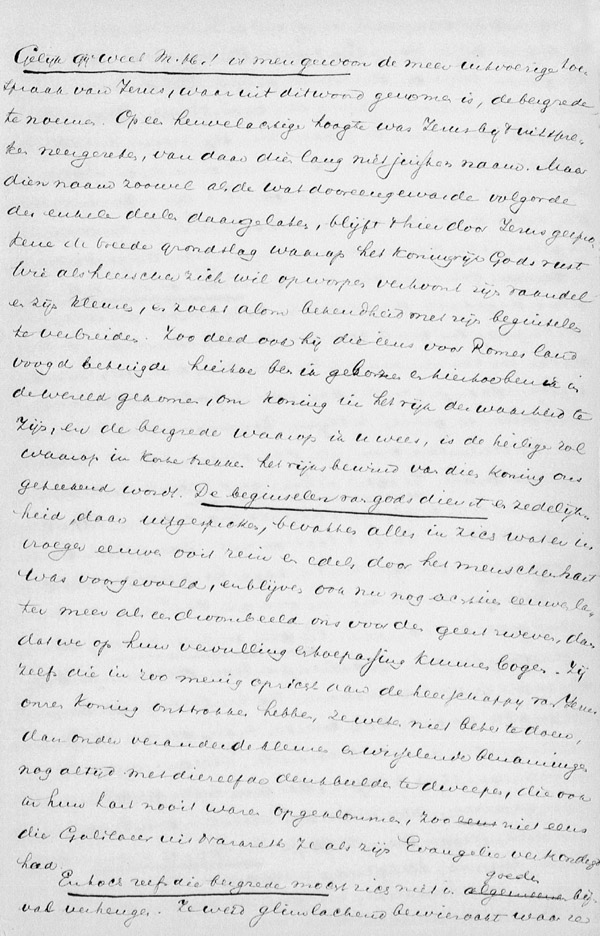 Gelijk gij weet M.H.! is men gewoon de meer uitvoerige toe-
spraak van Jezus, waar uit dit woord genomen is, de bergrede
te noemen. Op een heuvelachtige hoogte was Jezus bij 't uitspre-
ken neergezeten, van daar die lang niet juiste naam. Maar
dien naam zoowel als de wat dooreengewarde volgorde
der enkele deelen daargelaten, blijft het hier door Jezus gespro-
kene de breede grondslag waarop het koningrijk Gods rust
Wie als heerscher zich wil opwerpen vertoont zijn vaandel
en zijn kleuren, en zoekt alom bekendheid met zijn beginselen
te verbreiden. Zoo deed ook hij die eens voor Romes land
voogd betuigde hiertoe ben ik geboren en hiertoe ben ik in
de wereld gekomen, om koning in het rijk der waarheid te
zijn, en de bergrede waarop ik u wees, is de heilige rol
waarop in korte trekken het rijksbewind van dien koning ons
geteekend wordt. De beginselen van godsdienst en zedelijk-
heid, daar uitgesproken, bevatten alles in zich wat er in
vroeger eeuwen ooit rein en edels door het menschenhart
was voorgevoeld, en blijven ook nu nog achttien eeuwen la-
ter meer als een droombeeld ons voor den geest zweven, dan
dat we op hun vervulling en toepassing kunnen bogen. Zij
zelfs die in zoo menig opzicht aan de heerschappy van Jezus
onzen koning onttrokken hebben, ze weten niet beter te doen,
dan onder veranderde kleuren en wijzelende benamingen
nog altijd met diezelfde denkbeelden te dweepen, die ook
in hun hart nooit waren opgeklommen, zoo eens niet eens
die Galileer uit Nazareth ze als zijn Evangelie verkondigd
had.
goede
En toch zelfs die bergrede mocht zich niet in algemeenen bij-
val verheugen. Ze werd glimlachend bewierookt waar ze